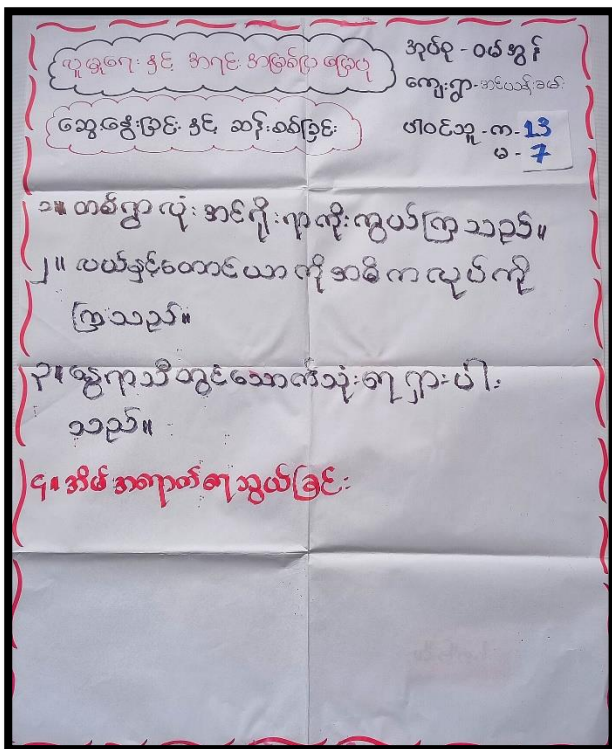 လူမှုရေး နှင့် အရင်းအမြစ်ပြမြေပုံ
ဆွေးနွေးခြင်း နှင့် ဆန်းစစ်ခြင်း
အုပ်စု - ဝမ်အွန်
ကျေးရွာ -
ပါဝင်သူ - က - 13
မ - 7
၁။ တစ်ရွာလုံး အင်ရိုးရာကိုးကွယ်ကြသည်။
၂။ လယ်နှင့်တောင်ယာ ကိုအဓိကလုပ်ကို
ကြသည်။
၃။ နွေရာသီတွင်သောက်သုံးရေရှားပါး
သည်။
၄။ အိမ်အရောက်ရေသွယ်ခြင်း